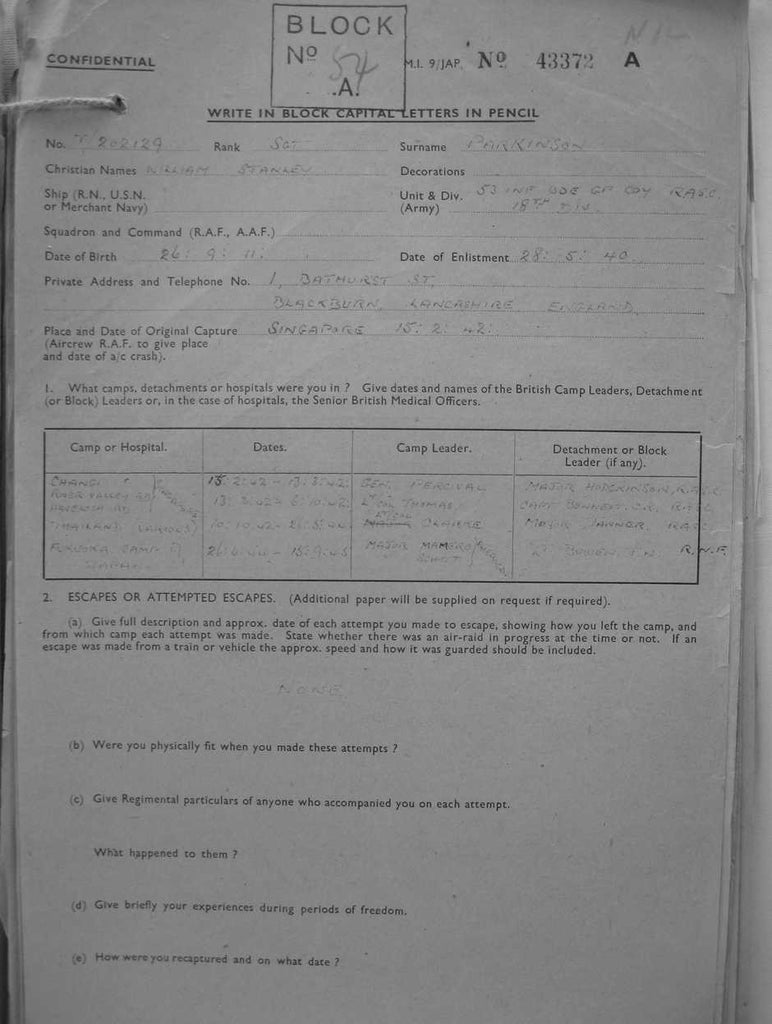 BLOCK
Nº 54
.A.
NIL
CONFIDENTIAL
M.I. 9/JAP. Nº 43372 A
WRITE IN BLOCK CAPITAL LETTERS IN PENCIL
No. T/202129 Rank SGT Surname PARKINSON
Christian Names WILLIAM STANLEY Decorations
Ship (R.N., U.S.N. or Merchant Navy)
Unit & Div. (Army) 53 INF BDE GP COY RASC
18TH DIV.
Squadron and Command (R.A.F., A.A.F.)
Date of Birth 26: 9: 11: Date of Enlistment 28: 5: 40
Private Address and Telephone No. 1, BATHURST ST,
BLACKBURN, LANCASHIRE ENGLAND
Place and Date of Original Capture SINGAPORE 15: 2: 42:
(Aircrew R.A.F. to give place
and date of a/c crash).
1. What camps, detachments or hospitals were you in ? Give dates and names of the British Camp Leaders, Detachment
(or Block) Leaders or, in the case of hospitals, the Senior British Medical Officers.
Camp or Hospital. Dates. Camp Leader. Detachment or Block Leader (if any).
CHANGI 15:2:42 - 13:3:42: GEN. PERCIVAL MAJOR HODGKINSON, R.A.S.C
RIVER VALLEY RD 13:3:42 - 6:10:42: LT COL THOMAS CAPT BENNETT RASC
THAILAND (VARIOUS) 10:10:42 - LT COL MAJOR RASC
FUKUOKA CAMP JAPAN 15:9:45 MAJOR LT BOWEN R.N.F.
2. ESCAPES OR ATTEMPTED ESCAPES. (Additional paper will be supplied on request if required).
(a) Give full description and approx. date of each attempt you made to escape, showing how you left the camp, and
from which camp each attempt was made. State whether there was an air-raid in progress at the time or not. If an
escape was made from a train or vehicle the approx. speed and how it was guarded should be included.
NONE
(b) Were you physically fit when you made these attempts ?
(c) Give Regimental particulars of anyone who accompanied you on each attempt.
What happened to them ?
(d) Give briefly your experiences during periods of freedom.
(e) How were you recaptured and on what date ?